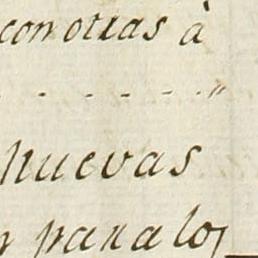 con otras à
- - - - - "
nuevas
para los